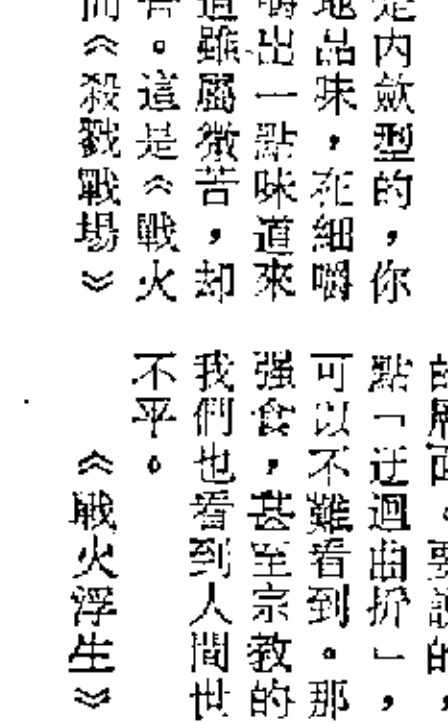 是内斂型的，你
地品味，在細嚼
嚼出一點味道來
道。雖屬微苦，却
。這是《戰火
而《殺戮戰場》
點「迂迴曲折」，
可以不難看到。那
强食，甚至宗教的
我們也看到人間世
不平。
《戰火浮生》